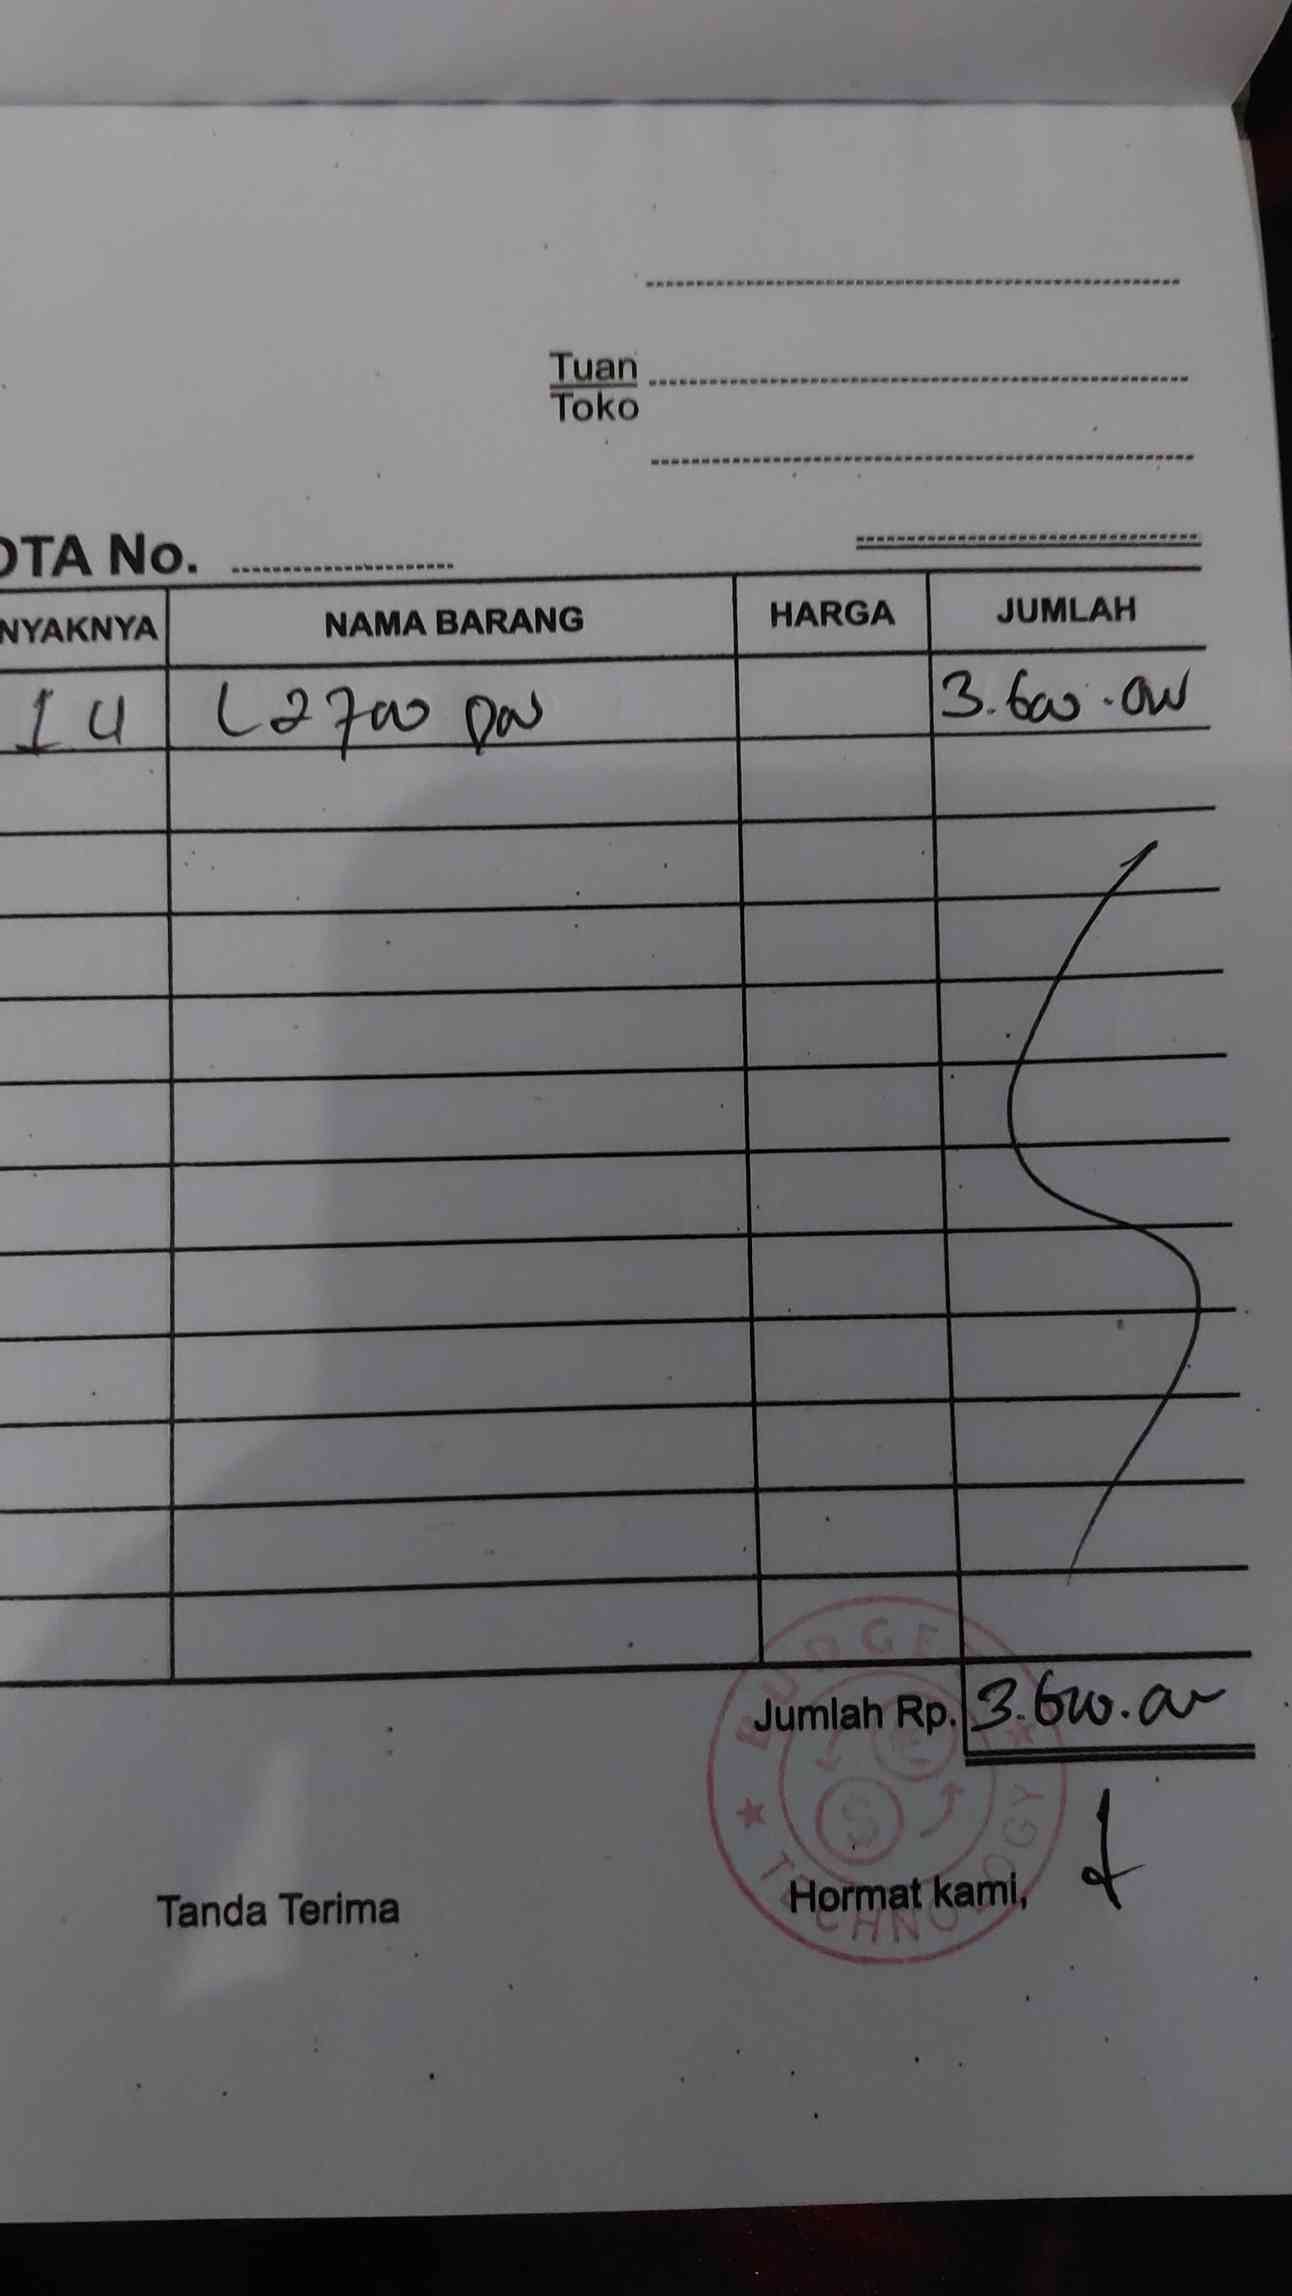 Tuan
Toko
OTA No.
NYAKNYA NAMA BARANG HARGA JUMLAH
1 U L2700 DW 3.600.000
Jumlah Rp. 3.600.000
BUDGET TECHNOLOGY
$
Tanda Terima Hormat kami,